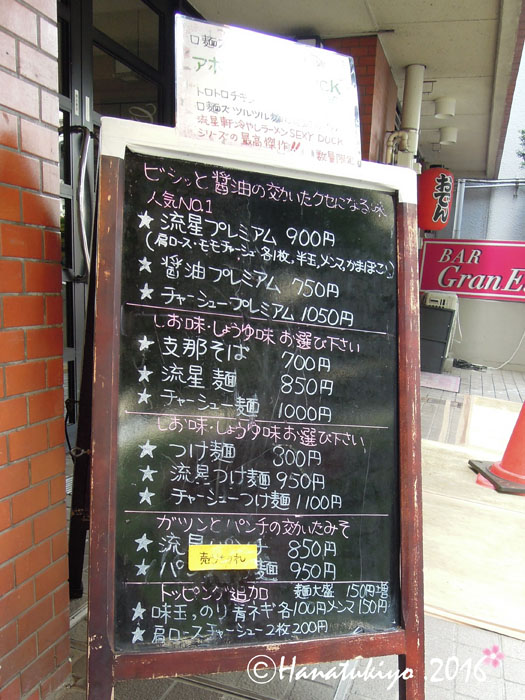 口麺ス
アホ CK
トロトロチキン
口麺ズツルツル麺
流星軒冷やしラーメンSEXY DUCK
シリーズの最高傑作!!
数量限定
ビシッと醤油の効いたクセになる味
人気NO.1
★流星プレミアム 900円
(肩ロース・モモチャーシュー各1枚,半玉,メンマ,かまぼこ)
★醤油プレミアム 750円
★チャーシュープレミアム 1050円
しお味・しょうゆ味お選び下さい
★支那そば 700円
★流星麺 850円
★チャーシュー麺 1000円
しお味・しょうゆ味お選び下さい
★つけ麺 800円
★流星つけ麺 950円
★チャーシューつけ麺 1100円
ガツンとパンチの効いたみそ
★流星 850円
売り切れ
★パン 麺 950円
トッピング追加 麺大盛 150円増
★味玉,のり青ネギ各100円メンマ150円
★肩ロースチャーシュー2枚200円
おでん
BAR
Gran E
©Hanatukiyo 2016